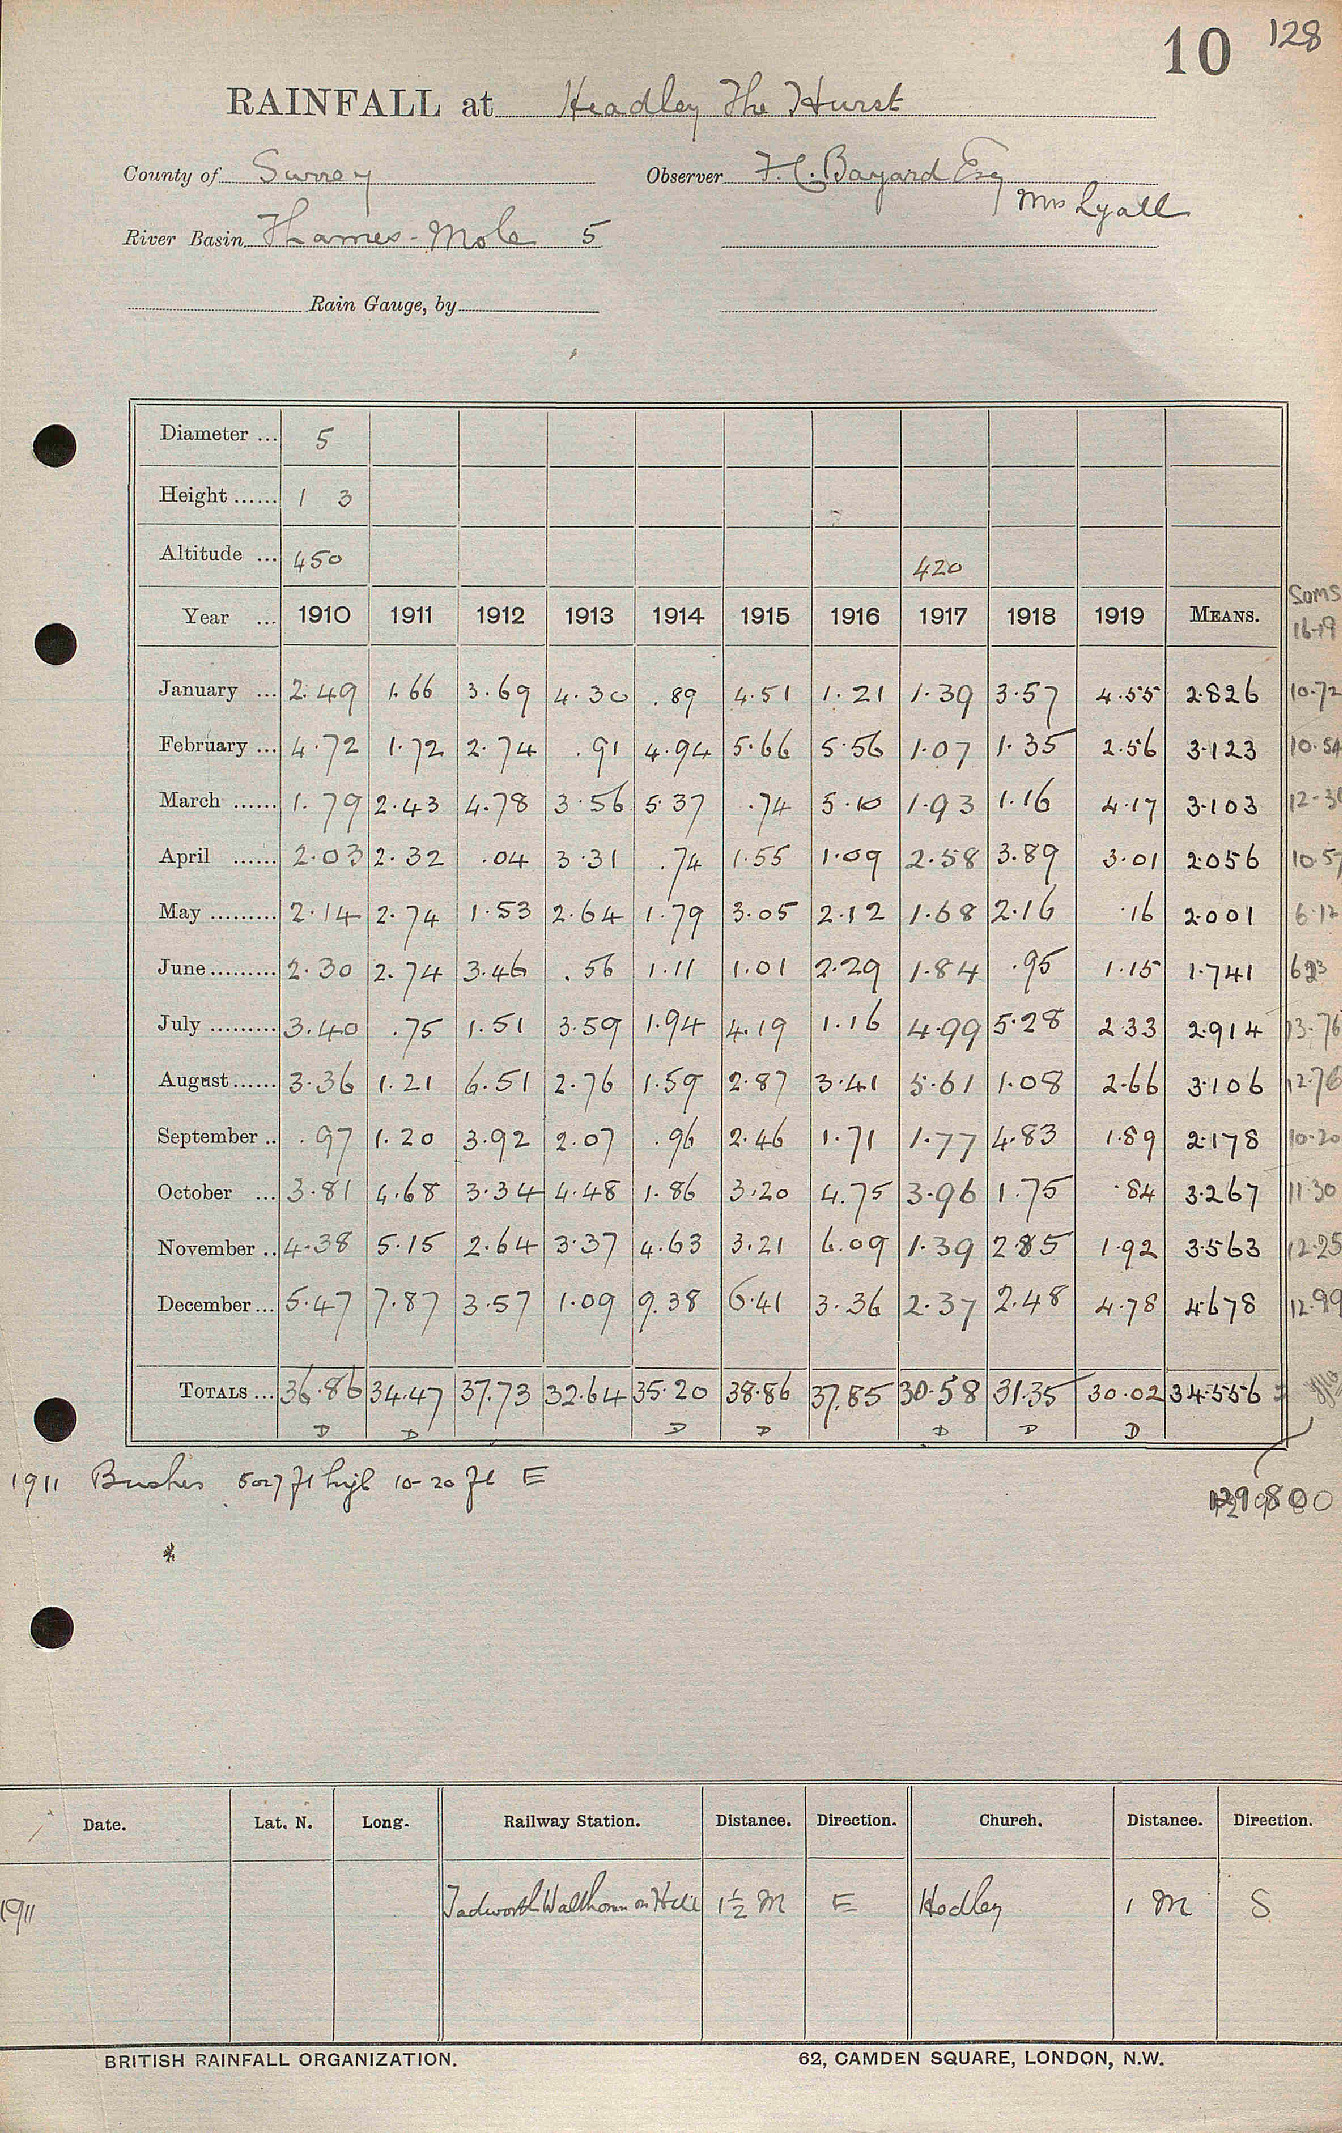 10 128
RAINFALL at Headley The Hurst
County of Surrey Observer F. C. Bayard Esq
Mrs Lyall
River Basin Thames - Mole 5
Rain Gauge, by
Diameter ... 5
Height ...... 1 3
Altitude ... 450 420
Soms
16-19
Year ... 1910 1911 1912 1913 1914 1915 1916 1917 1918 1919 MEANS.
January ... 2.49 1.66 3.69 4.30 .89 4.51 1.21 1.39 3.57 4.55 2.826 10.72
February ... 4.72 1.72 2.74 .91 4.94 5.66 5.56 1.07 1.35 2.56 3.123 10.54
March ...... 1.79 2.43 4.78 3.56 5.37 .74 5.10 1.93 1.16 4.17 3.103
April ...... 2.03 2.32 .04 3.31 .74 1.55 1.09 2.58 3.89 3.01 2.056 10.57
May ......... 2.14 2.74 1.53 2.64 1.79 3.05 2.12 1.68 2.16 .16 2.001 6.12
June ......... 2.30 2.74 3.46 .56 1.11 1.01 2.29 1.84 .95 1.15 1.741 6.23
July ......... 3.40 .75 1.51 3.59 1.94 4.19 1.16 4.99 5.28 2.33 2.914 13.76
August ...... 3.36 1.21 6.51 2.76 1.59 2.87 3.41 5.61 1.08 2.66 3.106 12.76
September .. .97 1.20 3.92 2.07 .96 2.46 1.71 1.77 4.83 1.89 2.178 10.20
October ... 3.81 4.68 3.34 4.48 1.86 3.20 4.75 3.96 1.75 .84 3.267 11.30
November .. 4.38 5.15 2.64 3.37 4.63 3.21 6.09 1.39 2.85 1.92 3.563 12.25
December ... 5.47 7.87 3.57 1.09 9.38 6.41 3.36 2.37 2.48 4.78 4.678 12.99
TOTALS ... 36.86 34.47 37.73 32.64 35.20 38.86 37.85 30.58 31.35 30.02 34.556
D D D D D D D
1911 Bushes 5 or 7 ft high 10-20 ft E
129.800
*
Date. Lat. N. Long. Railway Station. Distance. Direction. Church. Distance. Direction.
1911 Tadworth Walthown on Hill 1½ M E Hedley 1 M S
BRITISH RAINFALL ORGANIZATION. 62, CAMDEN SQUARE, LONDON, N.W.